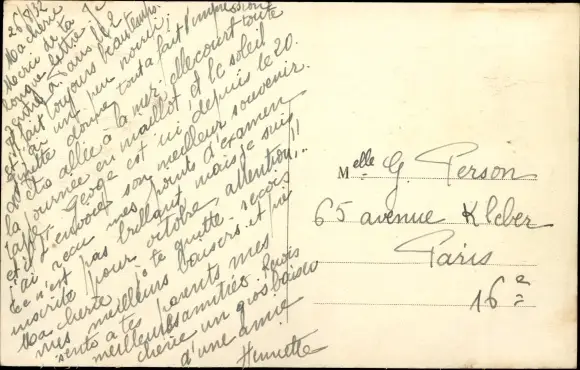 26/8/32
Ma chérie
Merci de ta
longue lettre. Je
rentre à Paris le 2
Il fait toujours beau temps.
un peu nourri
donne tout à fait l'impression
été allée à la mer, elle court toute
la journée en maillot, et le soleil
tape. George est ici depuis le 20.
et il t'envoie son meilleur souvenir.
J'ai reçu mes points d'examen
Ce n'est pas brillant mais je suis
inscrite pour octobre attention!!
Ma chérie je te quitte. reçois
mes meilleurs baisers et pré
sente à tes parents mes
meilleures amitiés. Reçois
chérie un gros baiser
d'une amie
Henriette
Melle G. Person
65 avenue Kleber
Paris
16e